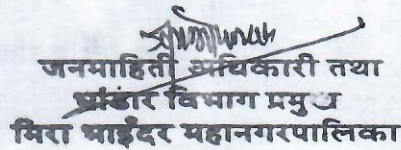 जनमाहिती अधिकारी तथा
भांडार विभाग प्रमुख
मिरा भाईंदर महानगरपालिका